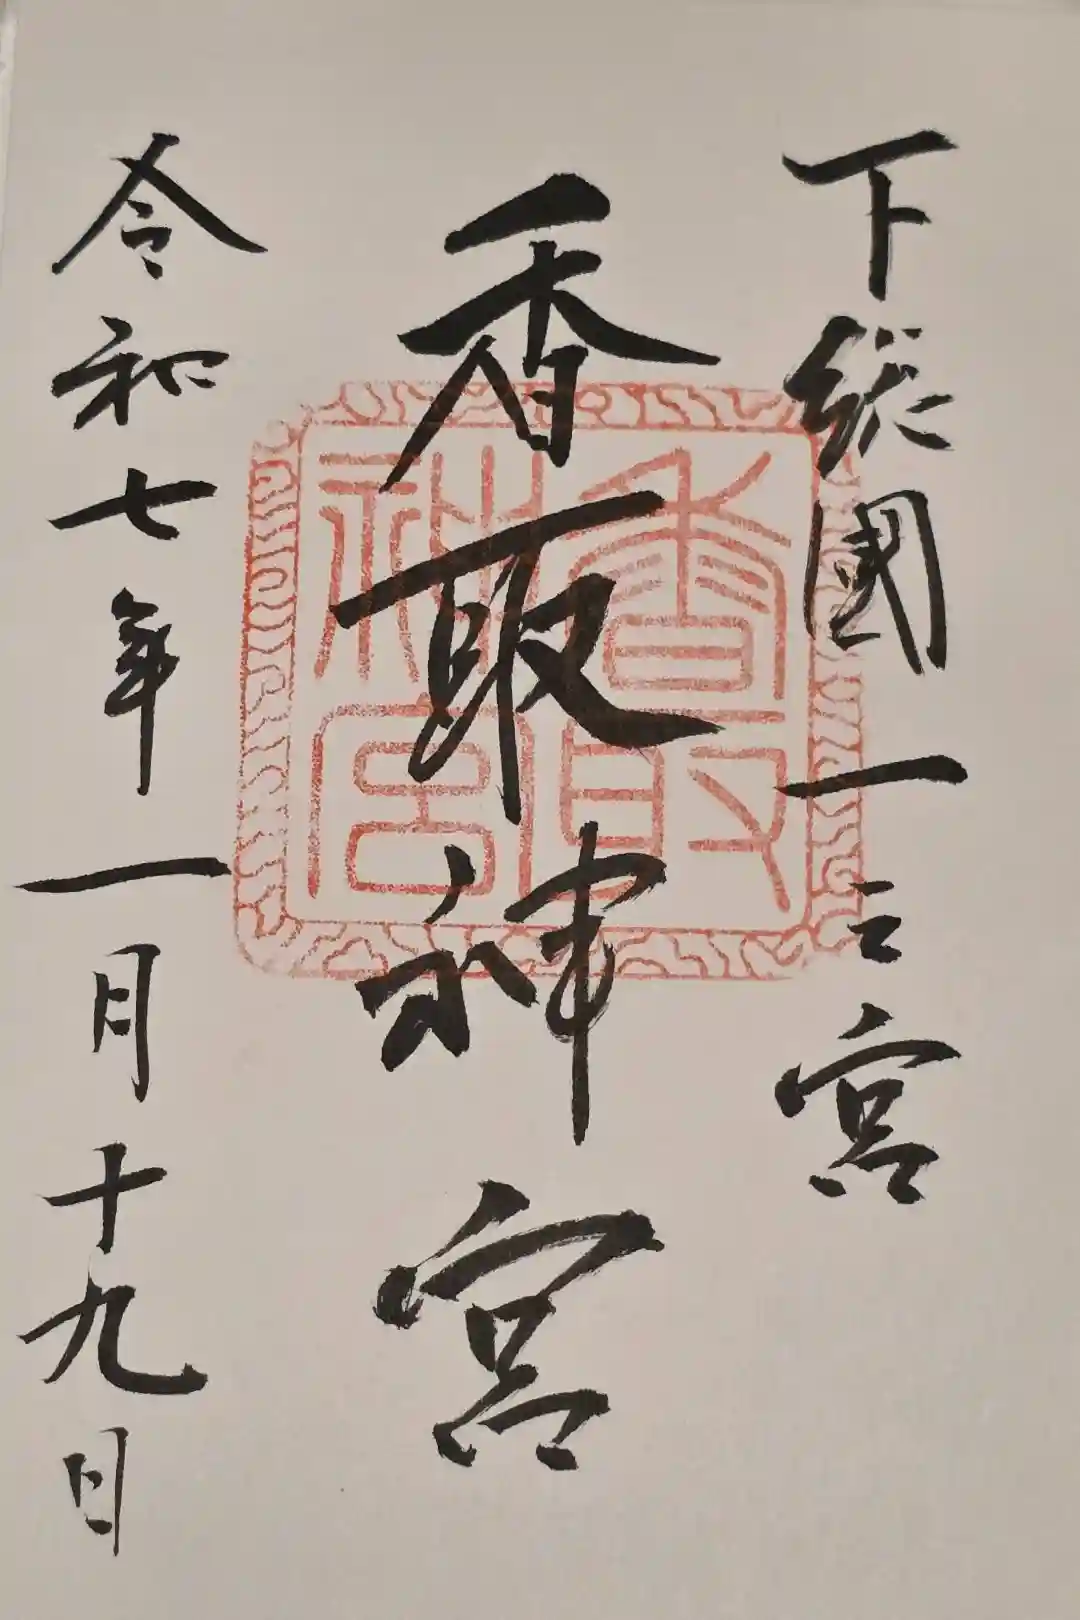 下総國一之宮
香取神宮
香取神宮
令和七年一月十九日